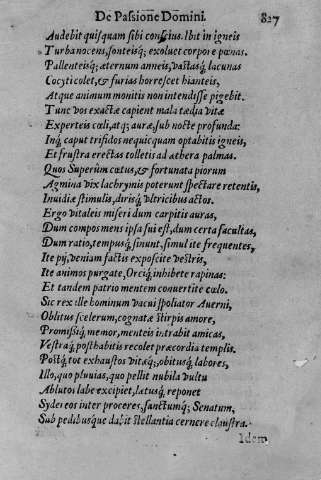 De Passione Domini. 827
Audebit quisquam sibi conscius. Ibit in igneis
Turba nocens, sonteisq; exoluet corpore pœnas.
Pallenteisq; æternum anneis, vastasq; lacunas
Cocyti colet, & furias horrescet hianteis,
Atque animum monitis non intendisse pigebit.
Tunc vos exactæ capient mala tædia vitæ
Experteis cœli, atq; auræ, sub nocte profunda:
Inq; caput trifidos nequicquam optabitis igneis,
Et frustra erectas tolletis ad æthera palmas.
Quos Superûm cœtus, & fortunata piorum
Agmina vix lachrymis poterunt spectare retentis,
Inuidiæ stimulis, dirisq; vltricibus actos.
Ergo vitaleis miseri dum carpitis auras,
Dum compos mens ipsa sui est, dum certa facultas,
Dum ratio, tempusq; sinunt, simul ite frequentes,
Ite pij, veniam factis exposcite vestris,
Ite animos purgate, Orciq; inhibete rapinas:
Et tandem patrio mentem conuertite cœlo.
Sic rex ille hominum vacui spoliator Auerni,
Oblitus scelerum, cognatæ stirpis amore,
Promissiq; memor, menteis intrabit amicas,
Vestraq; posthabitis recolet præcordia templis.
Postq; tot exhaustos vitæq;, obitusq; labores,
Illo, quo pluuias, quo pellit nubila vultu
Ablutos labe excipiet, lætusq; reponet
Sydereos inter proceres, sanctumq; Senatum,
Sub pedibusque dabit stellantia cernere claustra.
Idem